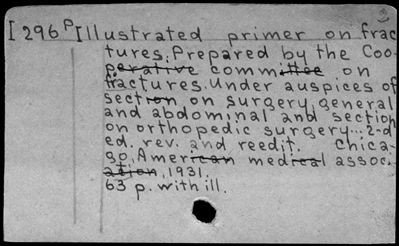 [296P Illustrated primer on frac
tures. Prepared by the Coo-
perative committee on
fractures. Under auspices of
section on surgery general
and abdominal and section
on orthopedic surgery... 2d
ed. rev. and reedit. Chica-
go, American medical assoc.
ation, 1931.
63 p. with ill.